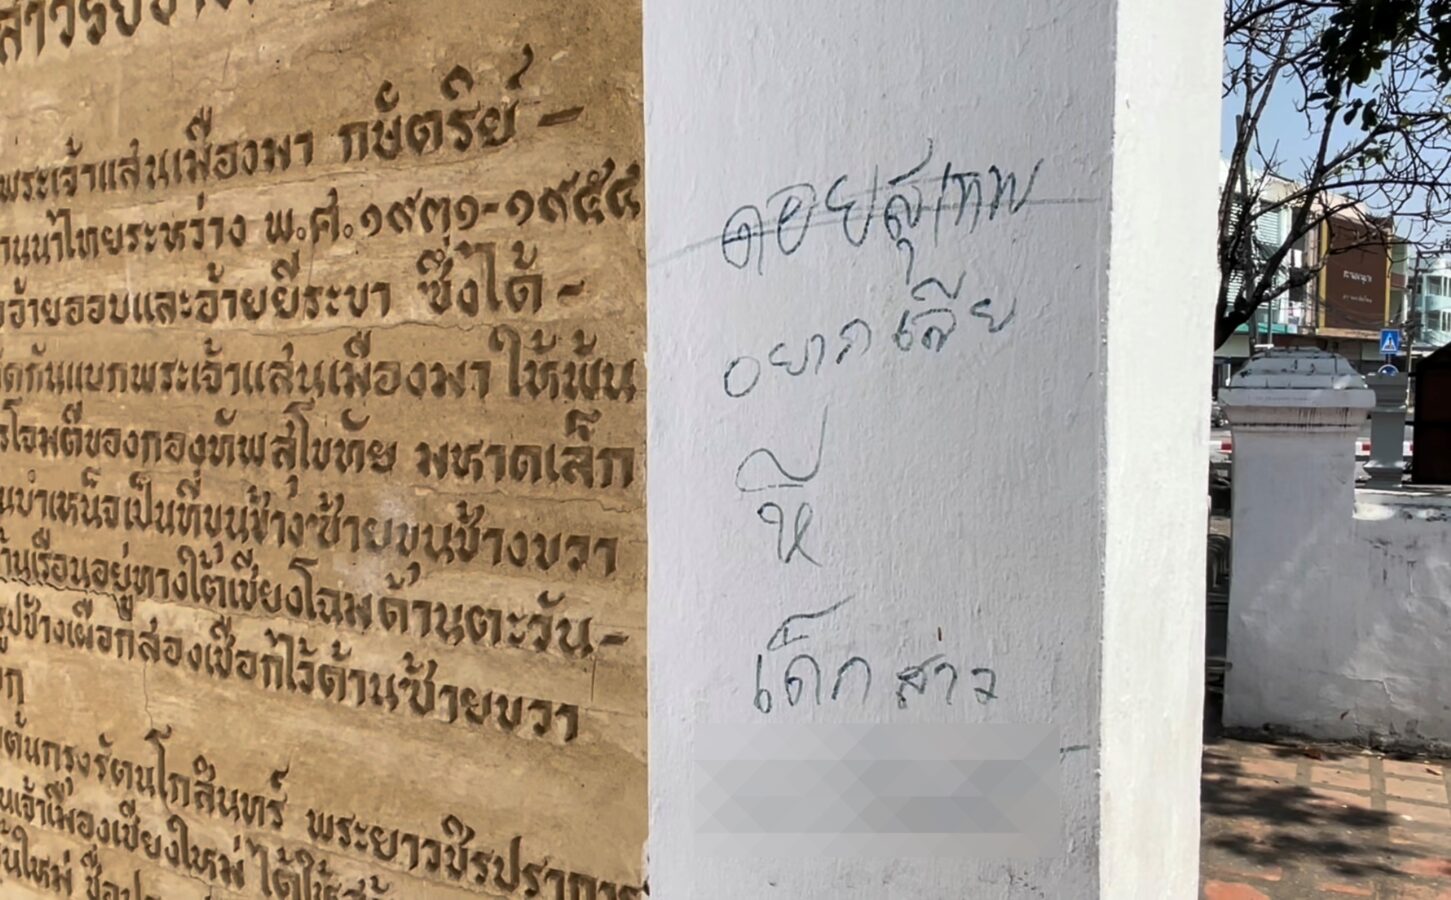 พระเจ้าแสนเมืองมา กษัตริย์ -
านนาไทยระหว่าง พ.ศ.๑๙๓๑-๑๙๕๔
อ้ายออบและอ้ายยีระบา ซึ่งได้ -
กันแบกพระเจ้าแสนเมืองมา ให้พ้น
รโจมตีของกองทัพสุโขทัย มหาดเล็ก
นบำเหน็จเป็นที่ขุนช้างซ้ายขุนช้างขวา
้านเรือนอยู่ทางใต้เชียงโฉมด้านตะวัน -
รูปช้างเผือกสองเชือกไว้ด้านซ้ายขวา
ต้นกรุงรัตนโกสินทร์ พระยาวชิรปราการ
นเจ้าเมืองเชียงใหม่ ได้ให้
นใหม่ ชื่อ
ดอยสุเทพ
อยากเลีย
หี
เด็กสาว